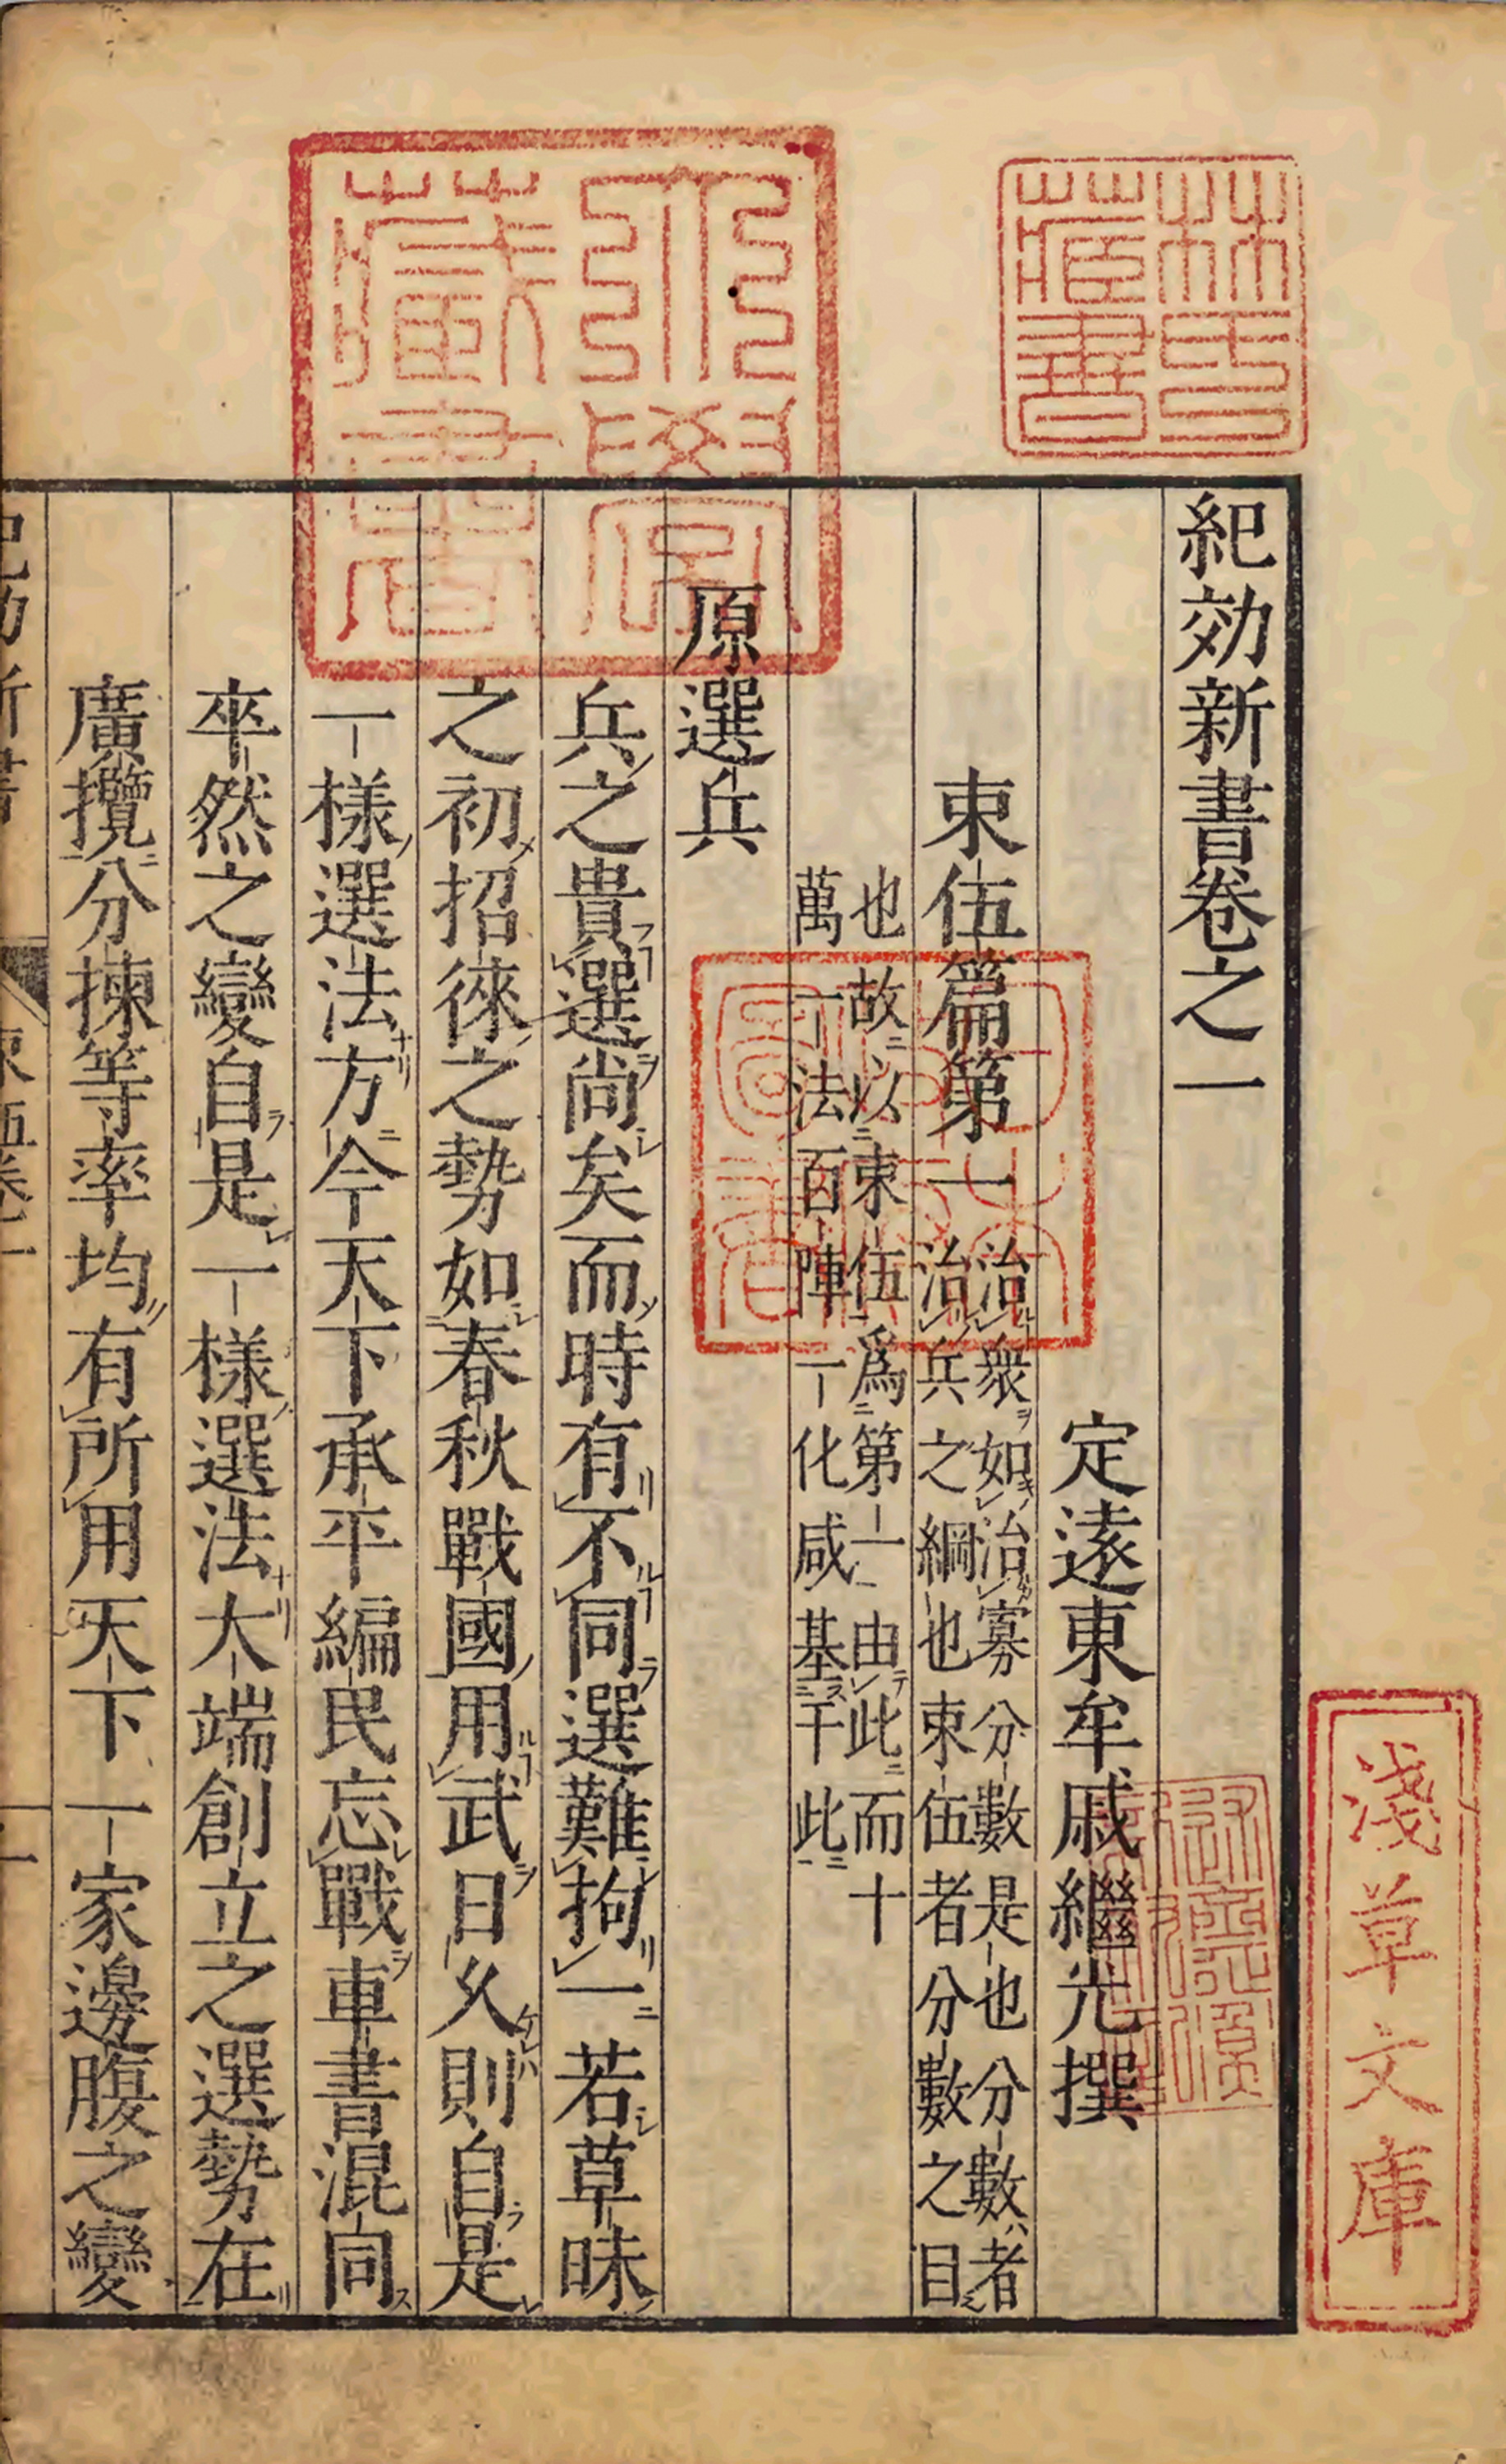 紀効新書卷之一
定遠東牟戚繼光撰
束伍篇第一
治衆如治寡分數是也分數者
治兵之綱也束伍者分數之目
也故以束伍爲第一由此而十
萬一法百陣一化咸基于此
原選兵
兵之貴選尚矣而時有不同選難拘一若草昧
之初招徠之勢如春秋戰國用武日久則自是
一樣選法方今天下承平編民忘戰車書混同
卒然之變自是一樣選法大端創立之選勢在
廣攬分揀等率均有所用天下一家邊腹之變
淺草文庫
林氏藏書